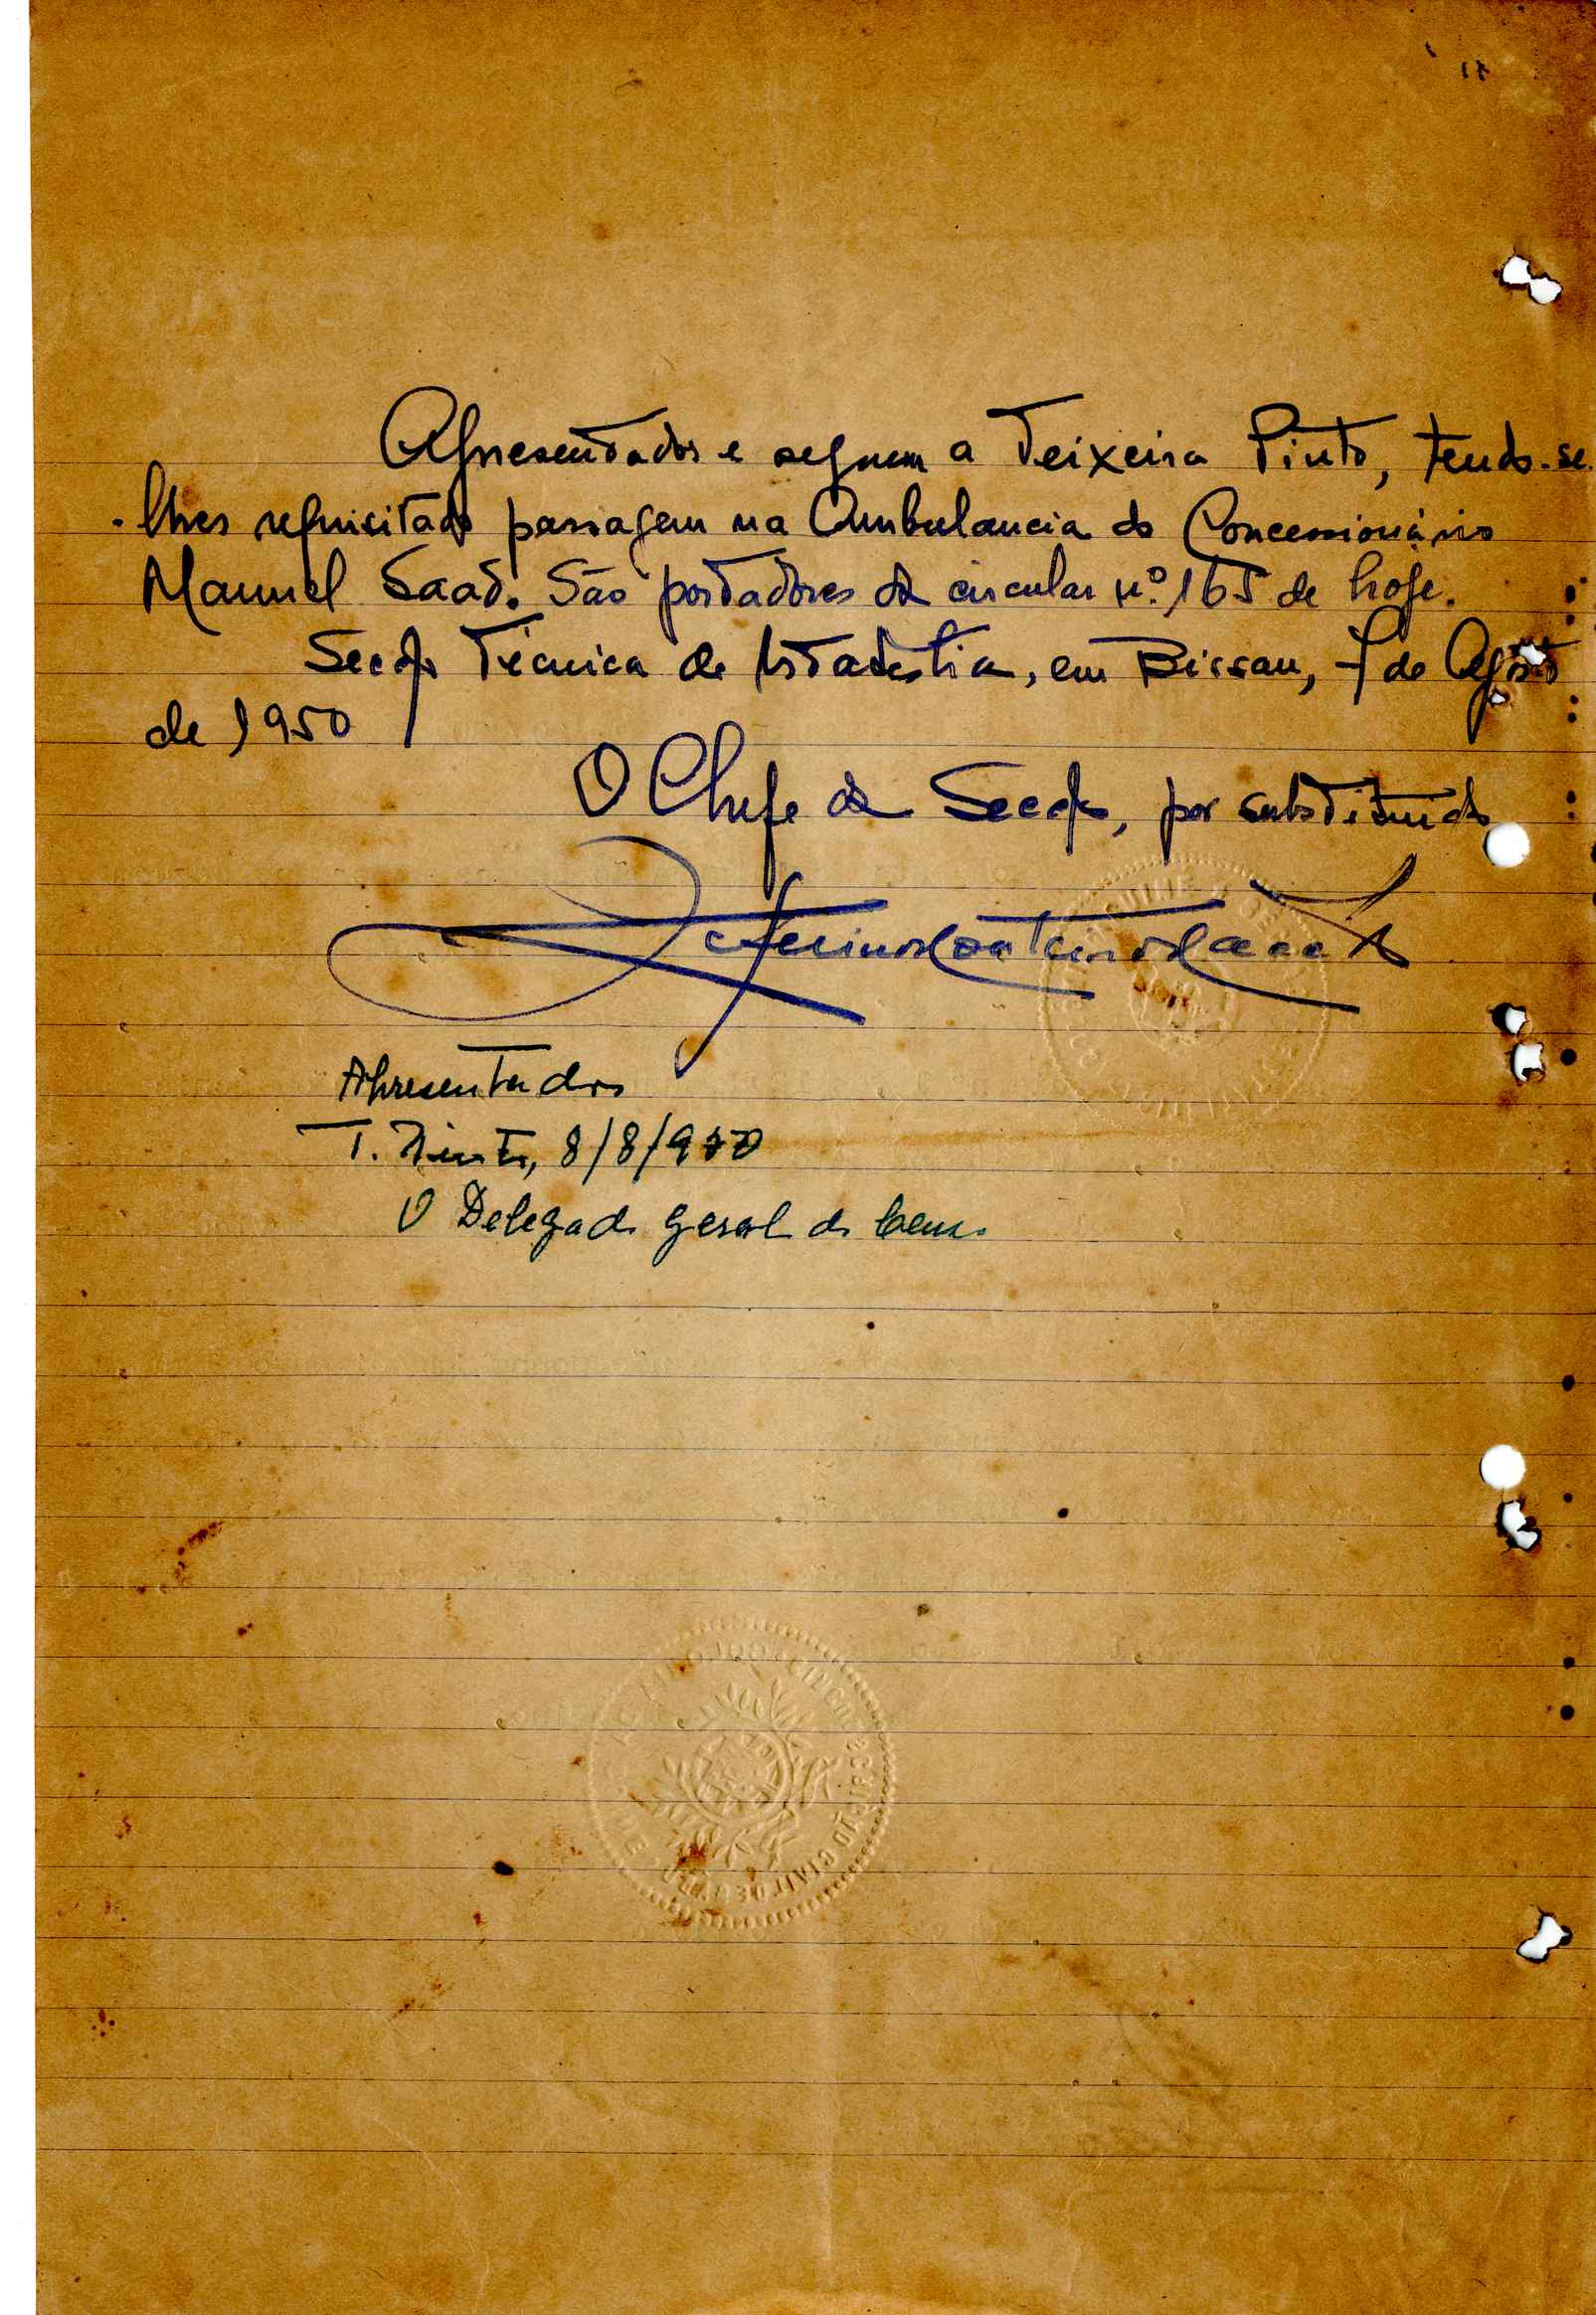 Apresentados e seguem a Teixeira Pinto, tendo-se
-lhes requisitado passagem na Ambulancia do Concessionário
Manuel Saad. São portadores da circular nº. 165 de hoje.
Secção Técnica de Estatística, em Bissau, 7 de Agosto
de 1950
O Chefe da Secção, por substituição
Apresentados
T. Pinto, 8/8/950
O Delegado geral do Censo